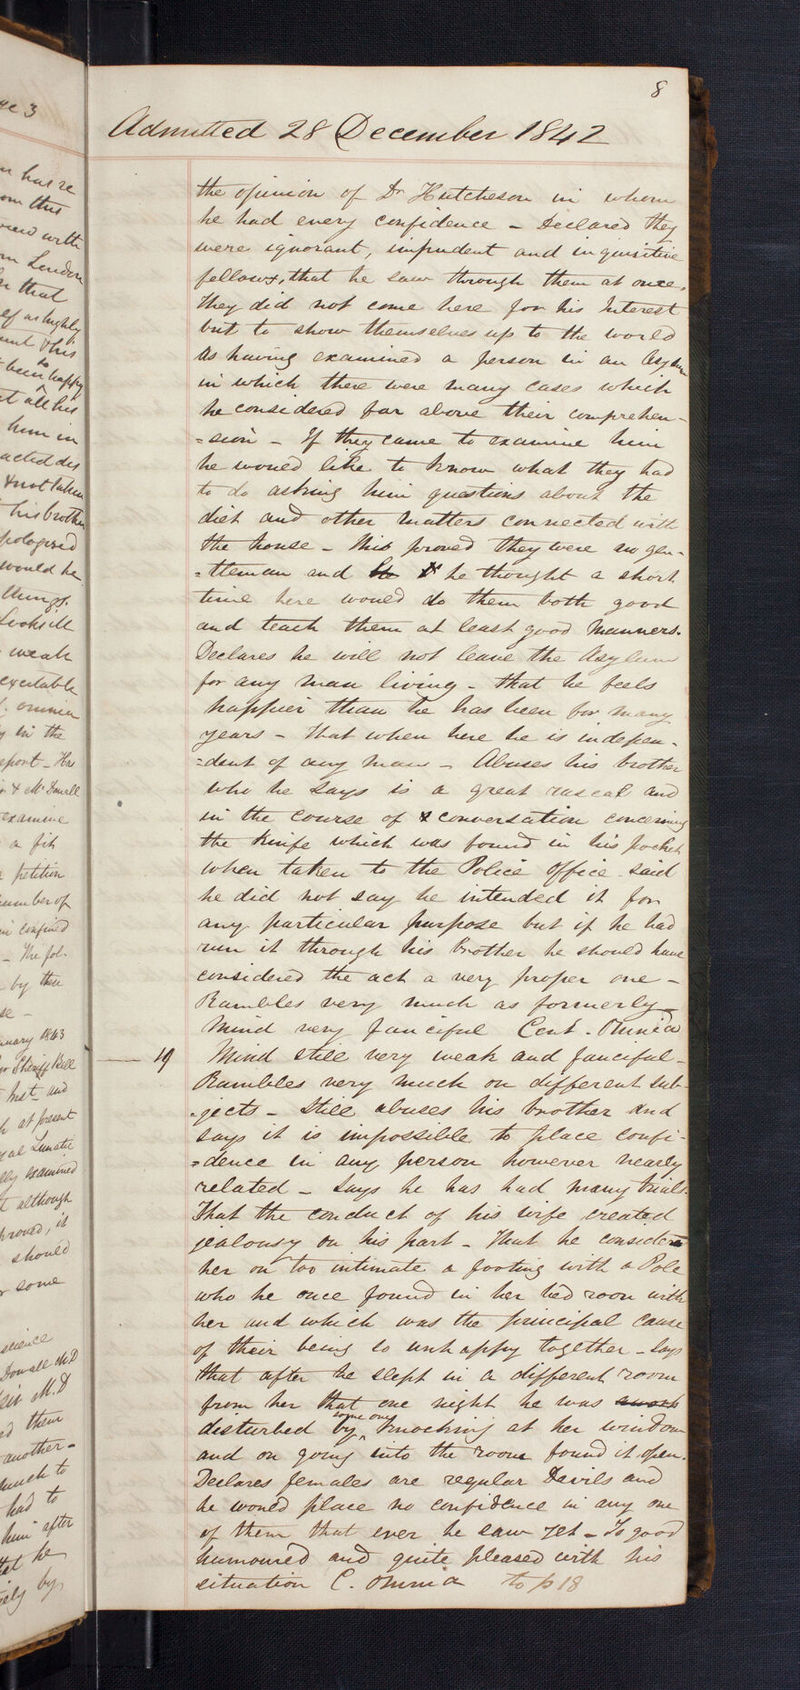 8
Admitted 28 December 1842
the opinion of Dr Hutcheson in whom
he had every confidence - Declared they
were ignorant, impudent and inquisitive
fellows, that he saw through them at once,
They did not come here for his Interest
but to show themselves up to the world
as having examined a person in an Asylum
in which there were many cases which
he considered far above their comprehen-
=sion - If they came to examine him
he would like to know what they had
to do asking him questions about the
diet and other matters connected with
the house - This proved they were no gen-
=tleman and he thought a short
time here would do them both good
and teach them at least good Manners.
Declares he will not leave the Asylum
for any man living - that he feels
happier than he has been for many
years - That when here he is indepen-
=dent of any man - Abuses his brother
who he says is a great rascal and
in the course of conversation concerning
the knife which was found in his pocket
when taken to the Police Office said
he did not say he intended it for
any particular purpose but if he had
run it through his brother he should have
considered the act a very proper one -
Rambles very much as formerly -
Mind very fanciful Cont. Omnia
19 Mind still very weak and fanciful -
Rambles very much on different sub-
=jects - Still abuses his brother and
says it is impossible to place confi-
=dence in any person however nearly
related - Says he has had many trials.
That the conduct of his wife created
jealousy on his part - That he considers
her on too intimate a footing with a Pole
who he once found in her bed room with
her and which was the principal cause
of their being so unhappy together - Says
that after he slept in a different room
from her that one night he was
disturbed by some one knocking at her window
and on going into the room found it open.
Declares females are regular Devils and
he would place no confidence in any one
of them that ever he saw yet - Is good
humoured and quite pleased with his
situation C. Omnia to p 18